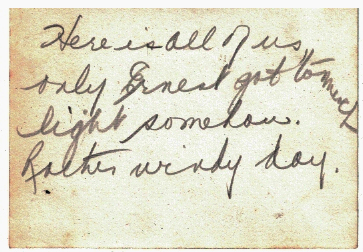 Here is all of us,
only Ernest got to much
light somehow.
Rather windy day.